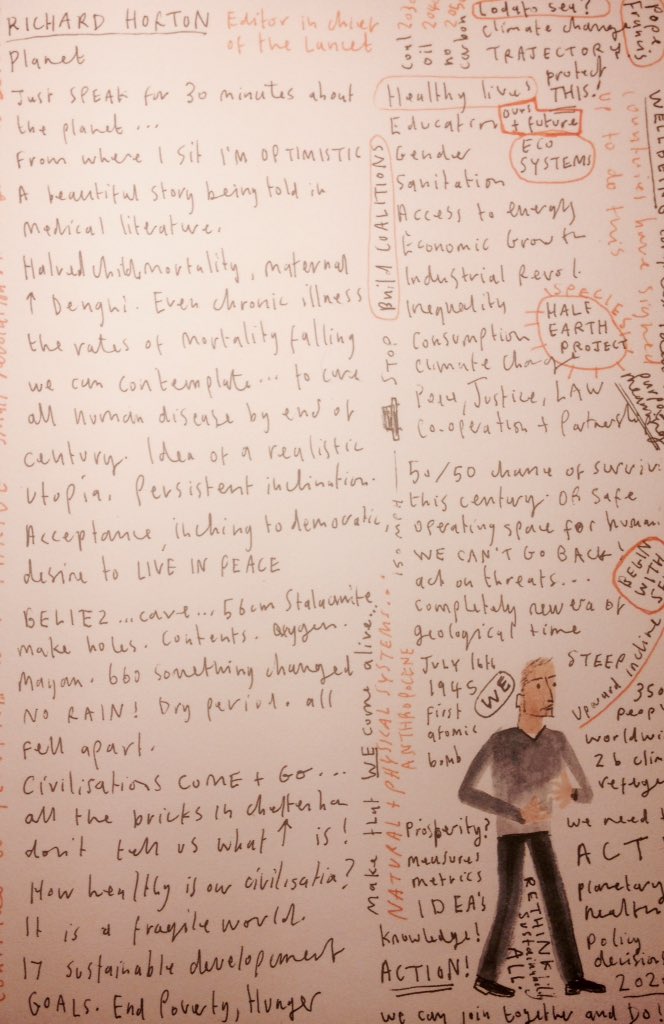 RICHARD HORTON
Editor in chief
of the Lancet
Planet
Just SPEAK for 30 minutes about
the planet ...
From where I sit I'm OPTIMISTIC
A beautiful story being told in
medical literature.
Halved child mortality, maternal
↑ Denghi. Even chronic illness
the rates of mortality falling
we can contemplate... to cure
all human disease by end of
century. Idea of a realistic
utopia. Persistent inclination.
Acceptance, inching to democratic,
desire to LIVE IN PEACE
BELIEZ ... cave ... 56cm Stalacmite
make holes. Contents. oxygen.
Mayan. 660 something changed
NO RAIN! Dry period. all
fell apart.
Civilisations COME + GO...
all the bricks in
don't tell us what ↑ is!
How healthy is our civilisatia?
It is a fragile world.
17 sustainable development
GOALS. End Poverty, Hunger
coal
oil
no
carbon
Lodato sea?
climate change
TRAJECTOR
protect
THIS!
Pope
Francis
Healthy lives
Education
ours
+ future
Gender
ECO
SYSTEMS
Sanitation
Access to energy
Economic Growth
Industrial Revol.
Inequality
Consumption
climate change
Peace, Justice, LAW
Co-operation + Partnership
Build COALITIONS
STOP
SPECIES
HALF
EARTH
PROJECT
countries have signed
up to do this
50/50 chance of surviv
this century. OR Safe
operating space for human
WE CAN'T GO BACK!
act on threats...
completely new era of
geological time
BEGIN
WITH
THIS
JULY 16th
1945
first
atomic
bomb
WE
STEEP
Upward incline
Make that WE come alive...
NATURAL + PHYSICAL SYSTEMS...
ANTHROPOCENE
150 MPH
350
peop
worldwi
2b clim
refugee
we need t
ACT
planetary
health
policy
decision
2020
Prosperity?
measures
metrics
IDEA's
knowledge!
ACTION!
RETHINK
sustainability
ALL!
we can join together and DO!